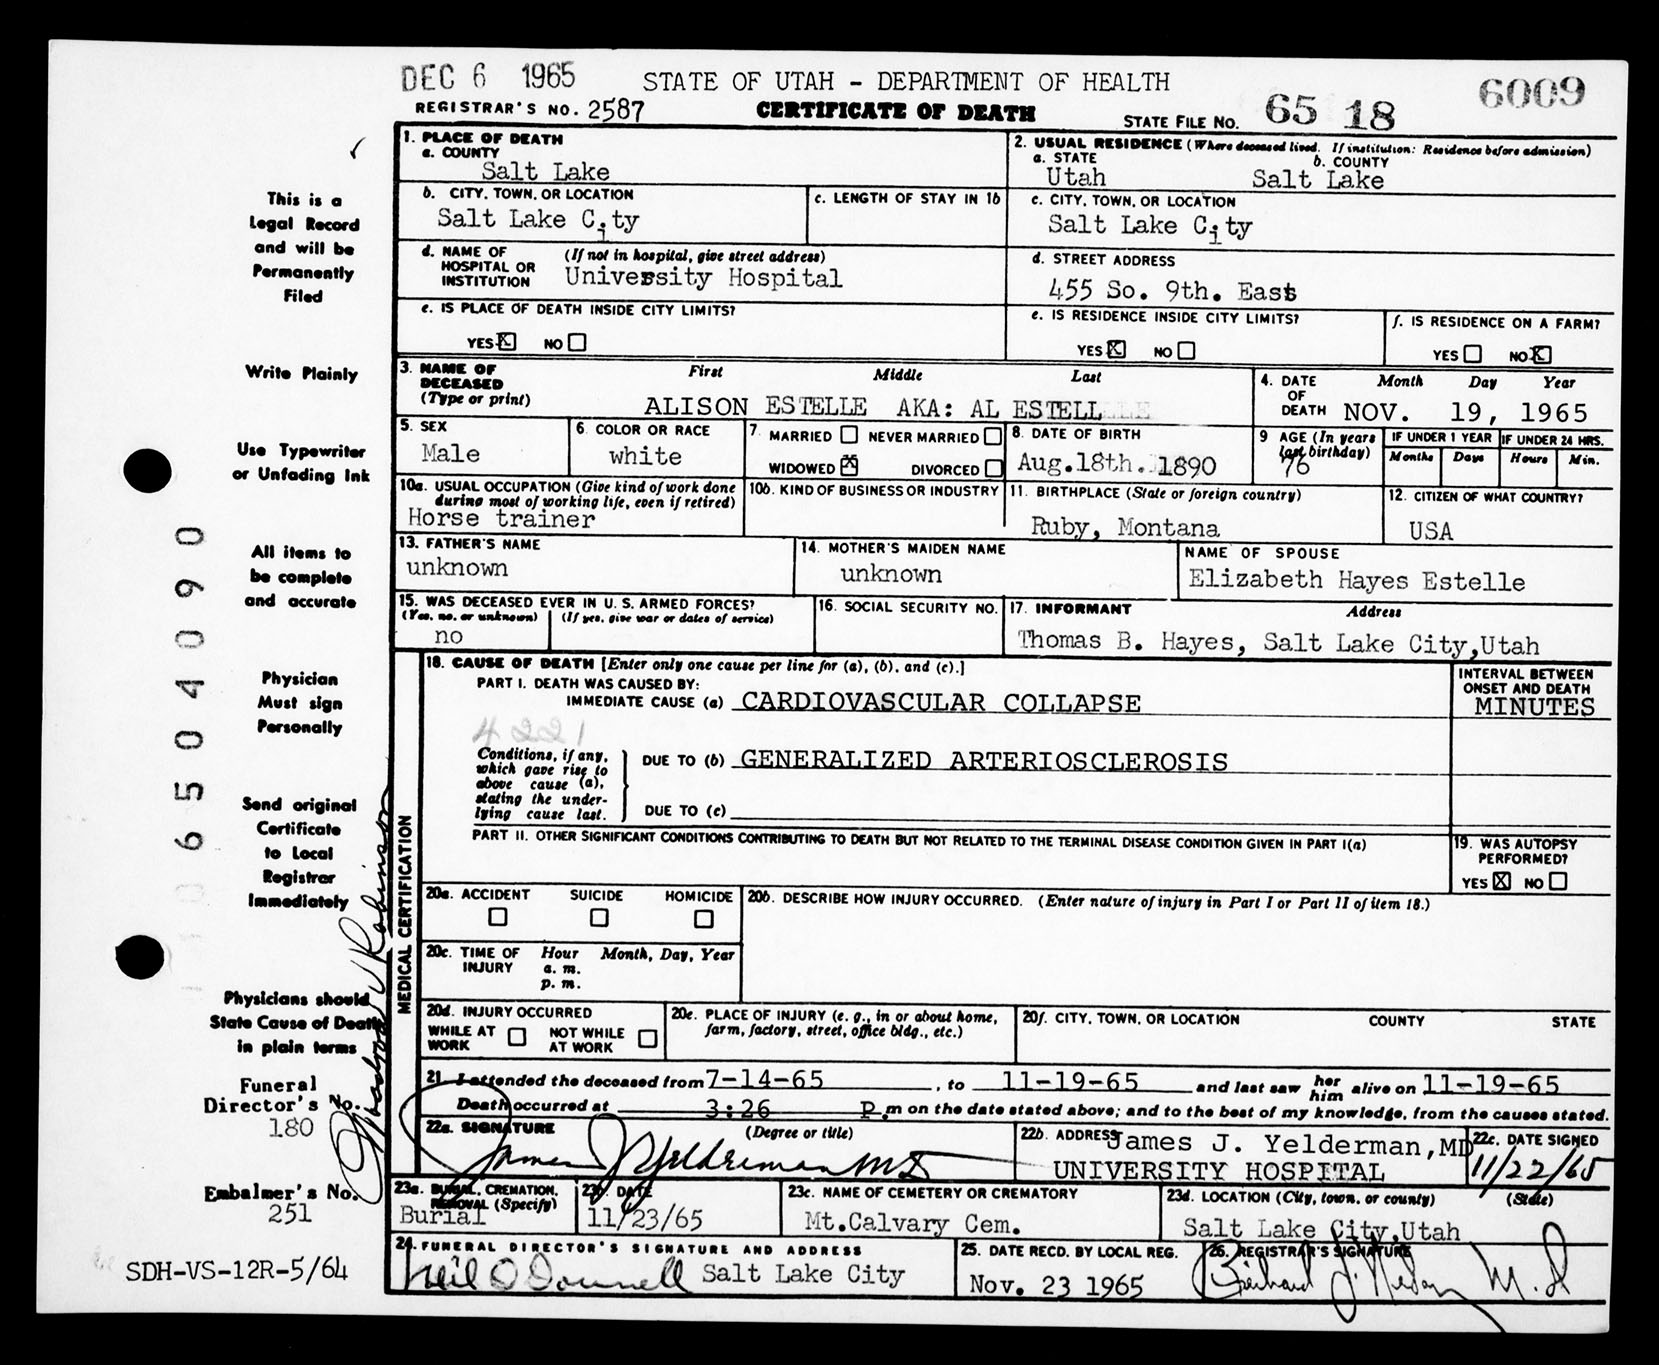 DEC 6 1965 STATE OF UTAH – DEPARTMENT OF HEALTH 6009
REGISTRAR'S NO. 2587 CERTIFICATE OF DEATH STATE FILE NO. 65 18
This is a
Legal Record
and will be
Permanently
Filed
Write Plainly
Use Typewriter
or Unfading Ink
All items to
be complete
and accurate
Physician
Must sign
Personally
Send original
Certificate
to Local
Registrar
Immediately
Physicians should
State Cause of Death
in plain terms
Funeral
Director's No.
180
Embalmer's No.
251
SDH-VS-12R-5/64
0650 4090
1. PLACE OF DEATH
a. COUNTY
Salt Lake
2. USUAL RESIDENCE (Where deceased lived. If institution: Residence before admission)
a. STATE b. COUNTY
Utah Salt Lake
b. CITY, TOWN, OR LOCATION
Salt Lake City
c. LENGTH OF STAY IN 1b
c. CITY, TOWN, OR LOCATION
Salt Lake City
d. NAME OF HOSPITAL OR INSTITUTION (If not in hospital, give street address)
University Hospital
d. STREET ADDRESS
455 So. 9th. East
e. IS PLACE OF DEATH INSIDE CITY LIMITS?
YES X NO
e. IS RESIDENCE INSIDE CITY LIMITS?
YES X NO
f. IS RESIDENCE ON A FARM?
YES NO X
3. NAME OF DECEASED (Type or print) First Middle Last
ALISON ESTELLE AKA: AL ESTELL
4. DATE OF DEATH Month Day Year
NOV. 19, 1965
5. SEX
Male
6. COLOR OR RACE
white
7. MARRIED NEVER MARRIED
WIDOWED X DIVORCED
8. DATE OF BIRTH
Aug.18th. 1890
9 AGE (In years last birthday)
76
IF UNDER 1 YEAR IF UNDER 24 HRS.
Months Days Hours Min.
10a. USUAL OCCUPATION (Give kind of work done during most of working life, even if retired)
Horse trainer
10b. KIND OF BUSINESS OR INDUSTRY
11. BIRTHPLACE (State or foreign country)
Ruby, Montana
12. CITIZEN OF WHAT COUNTRY?
USA
13. FATHER'S NAME
unknown
14. MOTHER'S MAIDEN NAME
unknown
NAME OF SPOUSE
Elizabeth Hayes Estelle
15. WAS DECEASED EVER IN U. S. ARMED FORCES?
(Yes, no, or unknown) (If yes, give war or dates of service)
no
16. SOCIAL SECURITY NO.
17. INFORMANT Address
Thomas B. Hayes, Salt Lake City,Utah
MEDICAL CERTIFICATION
18. CAUSE OF DEATH [Enter only one cause per line for (a), (b), and (c).]
PART I. DEATH WAS CAUSED BY:
IMMEDIATE CAUSE (a) CARDIOVASCULAR COLLAPSE
INTERVAL BETWEEN
ONSET AND DEATH
MINUTES
4221
Conditions, if any,
which gave rise to
above cause (a),
stating the under-
lying cause last.
DUE TO (b) GENERALIZED ARTERIOSCLEROSIS
DUE TO (c)
PART II. OTHER SIGNIFICANT CONDITIONS CONTRIBUTING TO DEATH BUT NOT RELATED TO THE TERMINAL DISEASE CONDITION GIVEN IN PART I(a)
19. WAS AUTOPSY
PERFORMED?
YES X NO
20a. ACCIDENT SUICIDE HOMICIDE
20b. DESCRIBE HOW INJURY OCCURRED. (Enter nature of injury in Part I or Part II of item 18.)
20c. TIME OF INJURY Hour Month, Day, Year
a. m.
p. m.
20d. INJURY OCCURRED
WHILE AT WORK NOT WHILE AT WORK
20e. PLACE OF INJURY (e. g., in or about home, farm, factory, street, office bldg., etc.)
20f. CITY, TOWN, OR LOCATION COUNTY STATE
21. I attended the deceased from 7-14-65, to 11-19-65 and last saw her him alive on 11-19-65
Death occurred at 3:26 P.m on the date stated above; and to the best of my knowledge, from the causes stated.
22a. SIGNATURE (Degree or title)
James J Yelderman MD
22b. ADDRESS James J. Yelderman,MD
UNIVERSITY HOSPITAL
22c. DATE SIGNED
11/22/65
23a. BURIAL, CREMATION, REMOVAL (Specify)
Burial
23b. DATE
11/23/65
23c. NAME OF CEMETERY OR CREMATORY
Mt.Calvary Cem.
23d. LOCATION (City, town, or county) (State)
Salt Lake City,Utah
24. FUNERAL DIRECTOR'S SIGNATURE AND ADDRESS
Neil O'Donnell Salt Lake City
25. DATE RECD. BY LOCAL REG.
Nov. 23 1965
26. REGISTRAR'S SIGNATURE
M.D